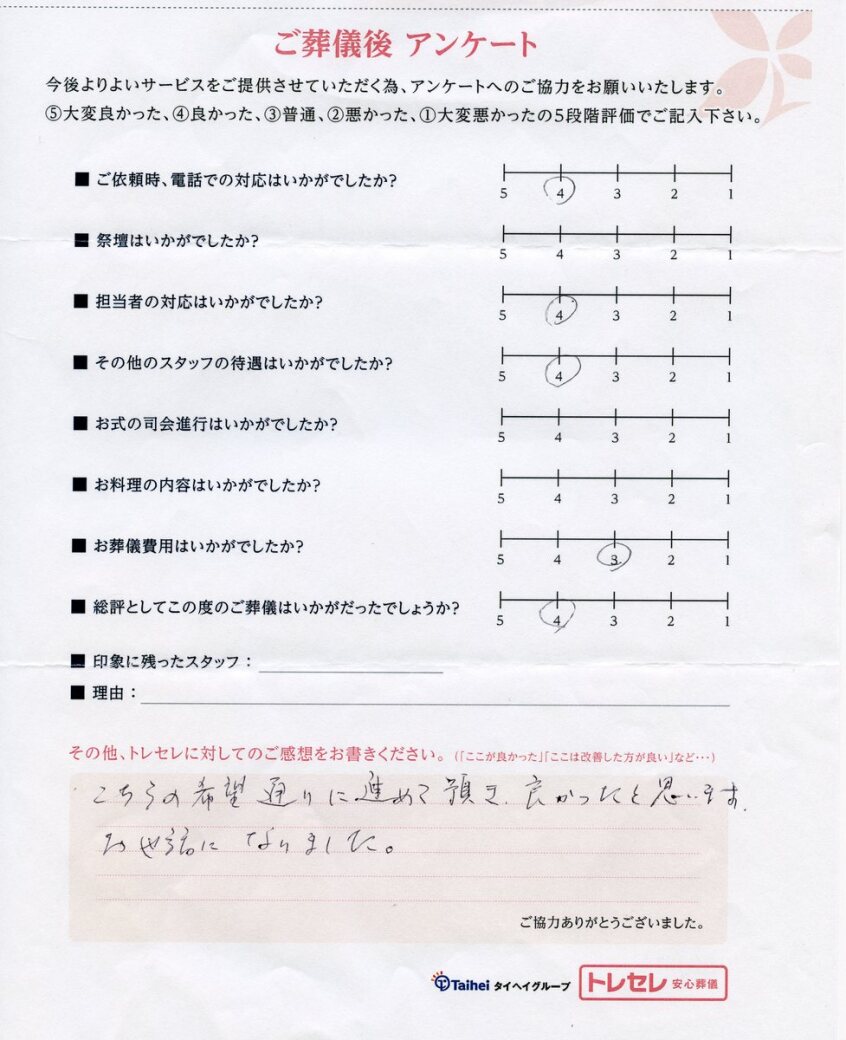 ご葬儀後 アンケート
今後よりよいサービスをご提供させていただく為、アンケートへのご協力をお願いいたします。
⑤大変良かった、④良かった、③普通、②悪かった、①大変悪かったの5段階評価でご記入下さい。
■ ご依頼時、電話での対応はいかがでしたか?
5 4 3 2 1
■ 祭壇はいかがでしたか?
5 4 3 2 1
■ 担当者の対応はいかがでしたか?
5 4 3 2 1
■ その他のスタッフの待遇はいかがでしたか?
5 4 3 2 1
■ お式の司会進行はいかがでしたか?
5 4 3 2 1
■ お料理の内容はいかがでしたか?
5 4 3 2 1
■ お葬儀費用はいかがでしたか?
5 4 3 2 1
■ 総評としてこの度のご葬儀はいかがだったでしょうか?
5 4 3 2 1
■ 印象に残ったスタッフ：
■ 理由：
その他、トレセレに対してのご感想をお書きください。(「ここが良かった」「ここは改善した方が良い」など…)
こちらの希望通りに進めて頂き、良かったと思います。
お世話になりました。
ご協力ありがとうございました。
Taihei タイヘイグループ トレセレ 安心葬儀